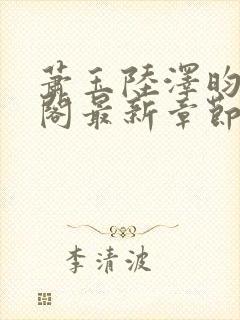 蕭玉陸澤昀
閣最新章節
李清波